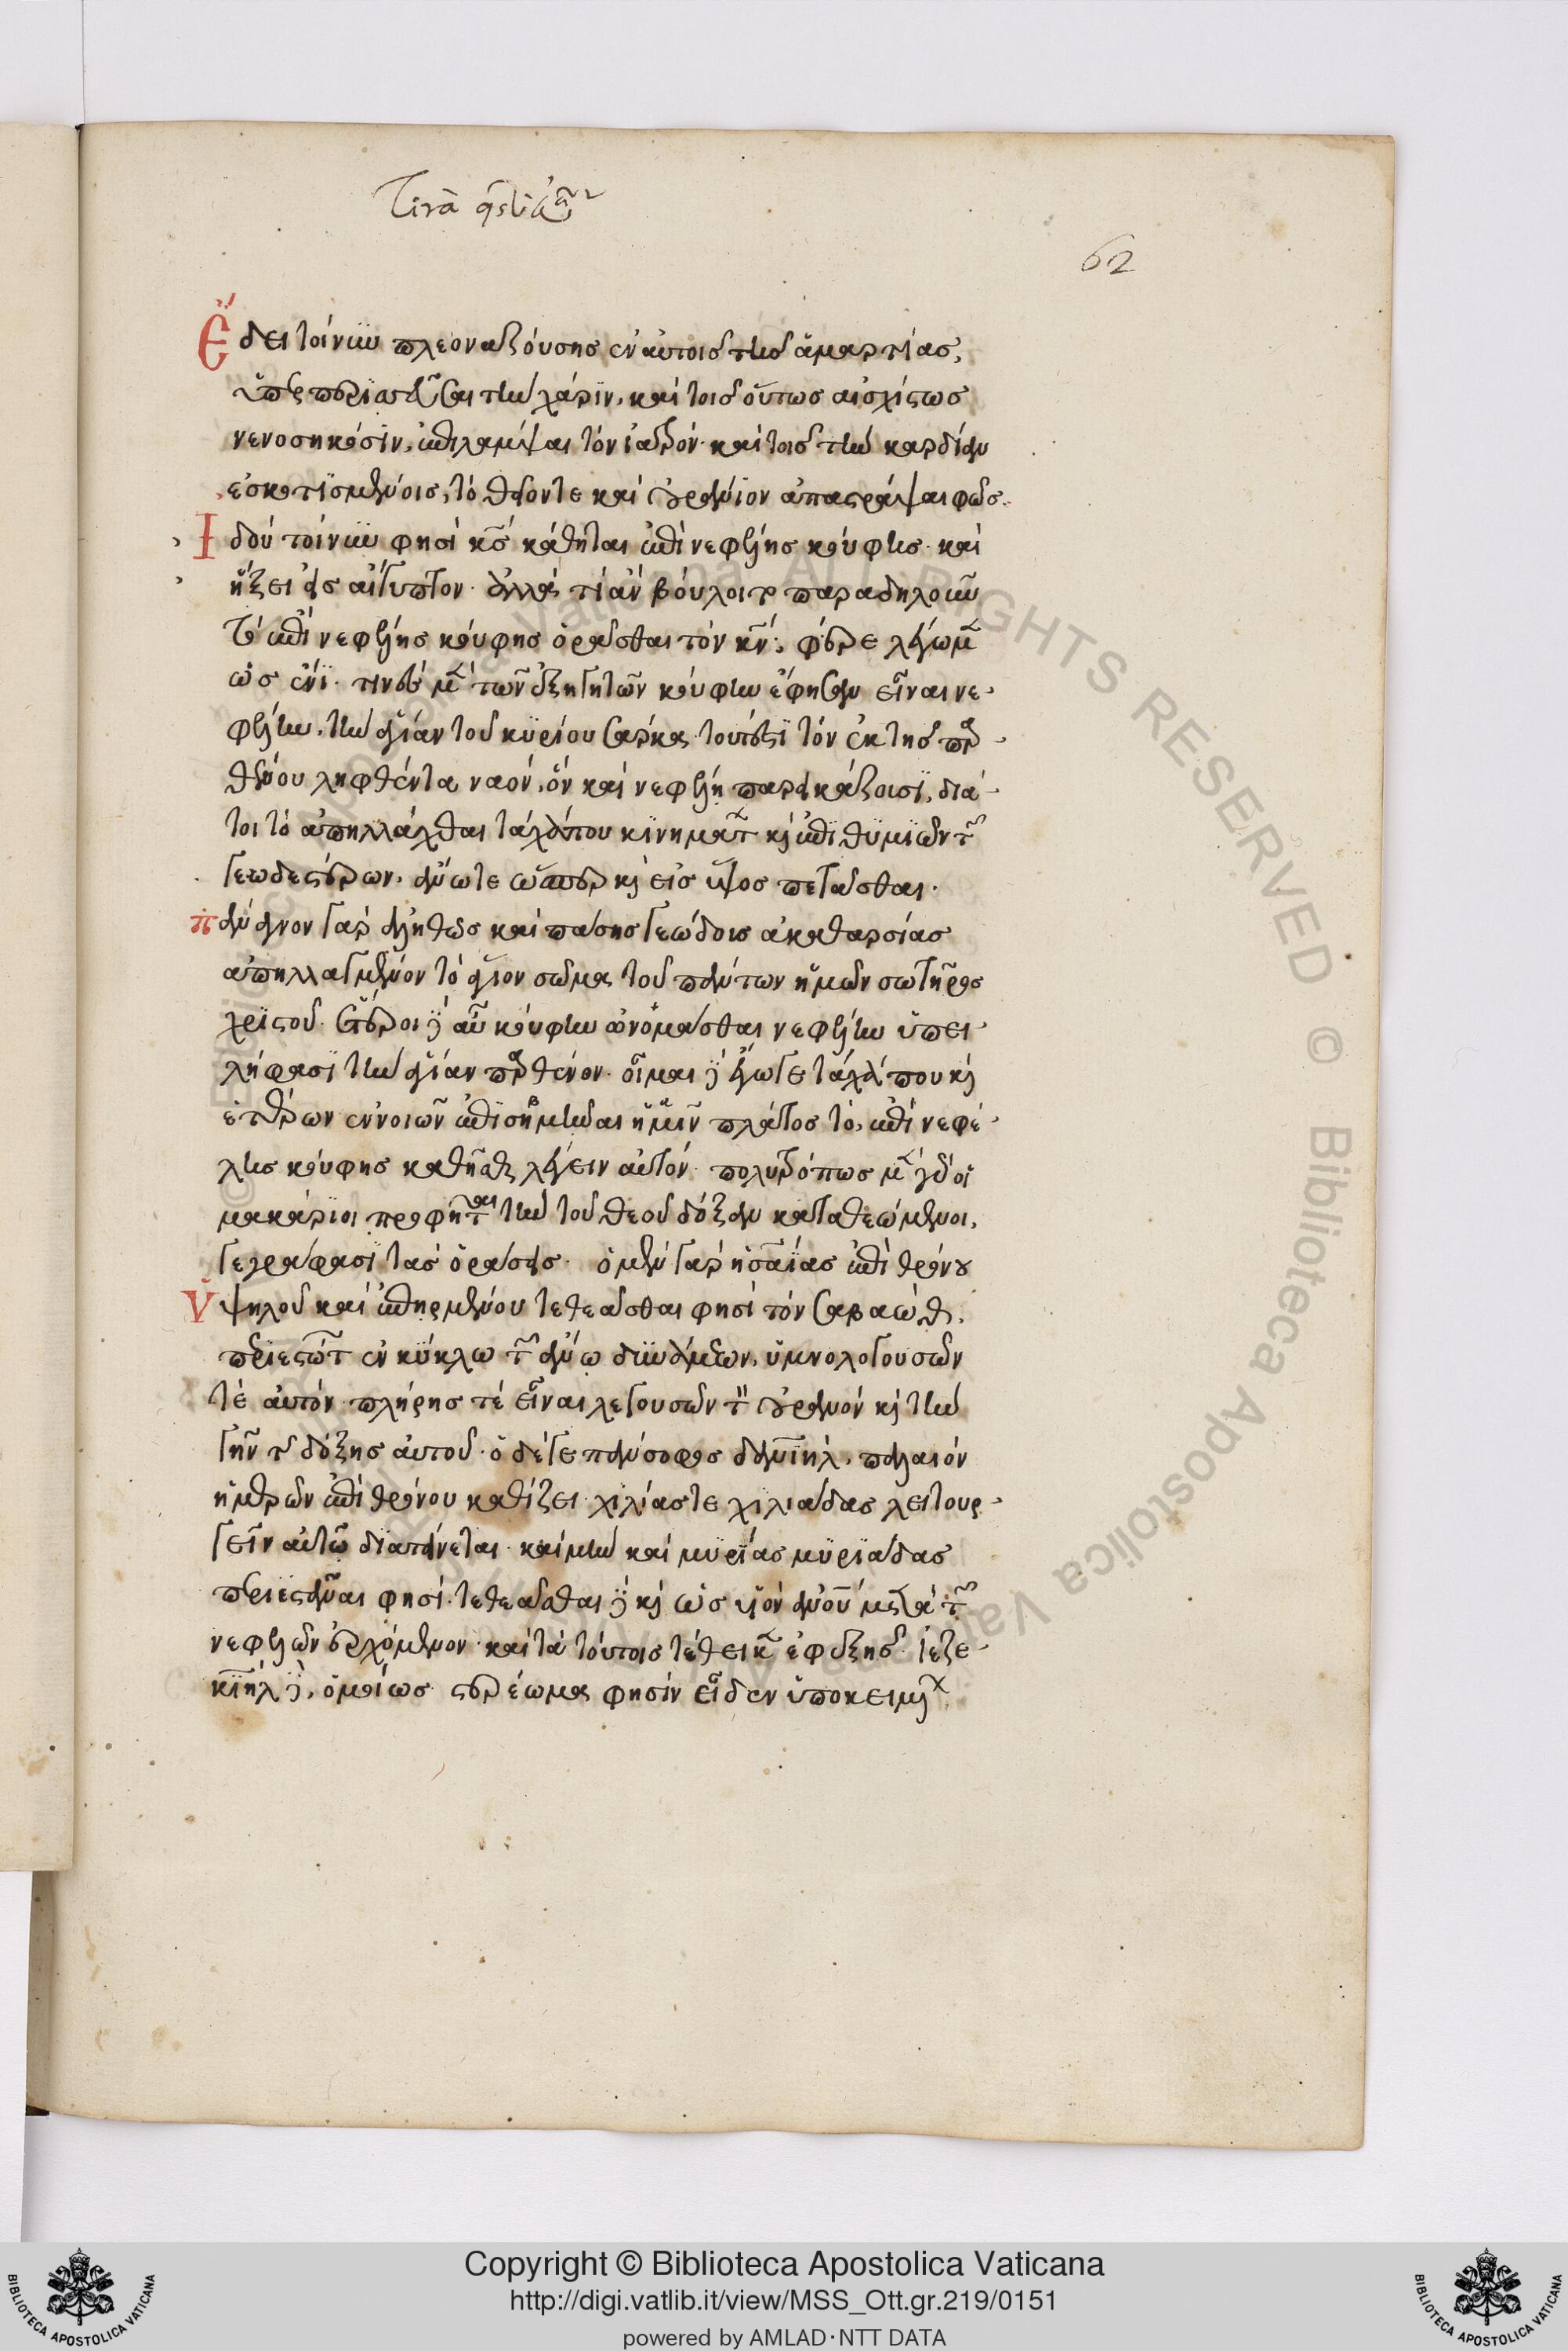 62
Ἔδει τοίνυν πλεοναζούσης ἐν αὐτοῖς τῆς ἁμαρτίας,
ὑπερπερισσεῦσαι τὴν χάριν, καὶ τοῖς οὕτως αἰσχίστως
νενοσηκόσιν, ἐπιλάμψαι τὸν ἰατρόν· καὶ τοῖς τὴν καρδίαν
ἐσκοτισμένοις, τὸ θεῖόν τε καὶ οὐράνιον ἀπαστράψαι φῶς.
Ἰδοὺ τοίνυν φησὶ κς κάθηται ἐπὶ νεφέλης κούφης· καὶ
ἥξει εἰς αἴγυπτον· ἀλλὰ τί ἂν βούλοιτο παραδηλοῦν
τὸ ἐπὶ νεφέλης κούφης ὁρᾶσθαι τὸν κν; φέρε λέγωμεν
ὡς ἔνι· τινὲς μὲν τῶν ἐξηγητῶν κούφην ἔφησαν εἶναι νε-
φέλην, τὴν ἁγίαν τοῦ κυρίου σάρκα, τουτέστι τὸν ἐκ τῆς παρ-
θένου ληφθέντα ναόν, ὃν καὶ νεφέλῃ παρεικάζουσι, διά
τοι τὸ ἀπηλλάχθαι τάχα που κινημάτων κ ἐπιθυμιῶν τῶν
γεωδεστέρων, ἄνω τε ὥσπερ κ εἰς ὕψος πετᾶσθαι.
πάναγνον γὰρ ἀληθῶς καὶ πάσης γεώδους ἀκαθαρσίας
ἀπηλλαγμένον τὸ ἅγιον σῶμα τοῦ πάντων ἡμῶν σωτῆρος
χριστοῦ. ἕτεροι δὲ αὖ κούφην ὠνομάσθαι νεφέλην ὑπει-
λήφασι τὴν ἁγίαν παρθένον· οἶμαι δὲ ἔγωγε τάχα που κ
ἑτέρων ἐννοιῶν ἐπισημῆναι ἡμῖν πλάτος τό, ἐπὶ νεφέ-
λης κούφης καθῆσθαι λέγειν αὐτόν· πολυτρόπως μὲν γὰρ οἱ
μακάριοι προφῆται τὴν τοῦ θεοῦ δόξαν καταθεώμενοι,
γεγράφασι τὰς ὁράσεις. ὁ μὲν γὰρ ἡσαΐας ἐπὶ θρόνου
ὑψηλοῦ καὶ ἐπηρμένου τεθεᾶσθαι φησὶ τὸν σαβαώθ,
περιεστώτων ἐν κύκλω τῶν ἄνω δυνάμεων, ὑμνολογουσῶν
τὲ αὐτόν· πλήρης τέ εἶναι λεγουσῶν τὸν οὐρανόν κ τὴν
γῆν τῆς δόξης αὐτοῦ· ὁ δέ γε πάνσοφος δανιήλ, παλαιόν
ἡμερῶν ἐπὶ θρόνου καθίζει· χιλίας τε χιλιάδας λειτουρ-
γεῖν αὐτῶ διατείνεται· καὶ μὴν καὶ μυρίας μυριάδας
περιεστάναι φησί· τεθεᾶσθαι δὲ κ ὡς υἱὸν ἀνου μετὰ τῶν
νεφελῶν ἐρχόμενον· καὶ τὰ τούτοις τέθεικεν ἐφεξῆς· ἰεζε-
κιὴλ δὲ, ὁμοίως στερέωμα φησὶν εἶδεν ὑποκείμενον
Copyright © Biblioteca Apostolica Vaticana
http://digi.vatlib.it/view/MSS_Ott.gr.219/0151
powered by AMLAD·NTT DATA
BIBLIOTECA APOSTOLICA VATICANA
BIBLIOTECA APOSTOLICA VATICANA